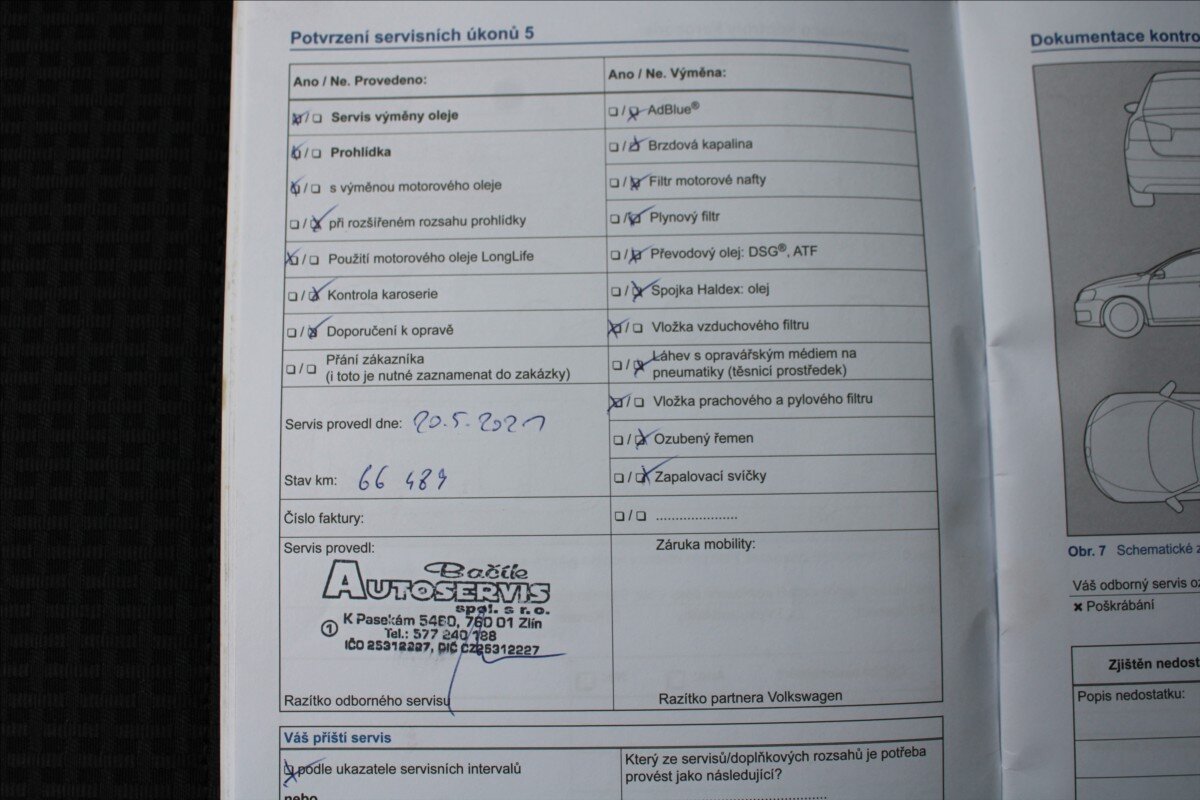 Potvrzení servisních úkonů 5
Ano / Ne. Provedeno:
☒ / ☐ Servis výměny oleje
☒ / ☐ Prohlídka
☒ / ☐ s výměnou motorového oleje
☐ / ☒ při rozšířeném rozsahu prohlídky
☒ / ☐ Použití motorového oleje LongLife
☐ / ☒ Kontrola karoserie
☐ / ☒ Doporučení k opravě
☐ / ☐ Přání zákazníka
(i toto je nutné zaznamenat do zakázky)
Servis provedl dne: 20.5.2021
Stav km: 66 489
Číslo faktury:
Servis provedl:
Bačík
AUTOSERVIS
spol. s r.o.
① K Pasekám 5460, 760 01 Zlín
Tel.: 577 240 188
IČO 25312227, DIČ CZ25312227
Razítko odborného servisu
Ano / Ne. Výměna:
☐ / ☒ AdBlue®
☐ / ☒ Brzdová kapalina
☐ / ☒ Filtr motorové nafty
☐ / ☒ Plynový filtr
☐ / ☒ Převodový olej: DSG®, ATF
☐ / ☒ Spojka Haldex: olej
☒ / ☐ Vložka vzduchového filtru
☐ / ☒ Láhev s opravářským médiem na
pneumatiky (těsnicí prostředek)
☒ / ☐ Vložka prachového a pylového filtru
☐ / ☒ Ozubený řemen
☐ / ☒ Zapalovací svíčky
☐ / ☐ .....................
Záruka mobility:
Razítko partnera Volkswagen
Váš příští servis
☒ podle ukazatele servisních intervalů
nebo
Který ze servisů/doplňkových rozsahů je potřeba
provést jako následující?
Dokumentace kontro
Obr. 7 Schematické z
Váš odborný servis oz
✖ Poškrábání
Zjištěn nedost
Popis nedostatku: